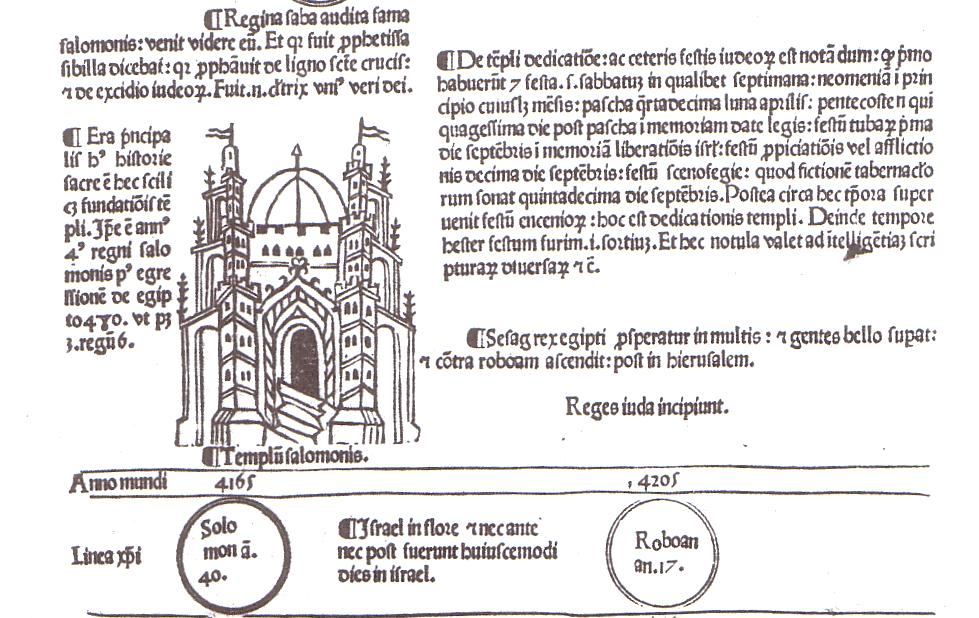 ¶Regina saba audita fama
salomonis: venit videre eũ. Et qꝛ fuit ꝓphetissa
sibilla dicebat: qꝛ ꝓphãuit de ligno scte crucis:
⁊ de excidio iudeoꝝ. Fuit.n. cltrix vniꝰ veri dei.
¶ Era pͥncipa
lis hꝰ historie
sacre ē hec scili
cꝫ fundatiõis tē
pli. Jpͤe ē annꝰ
4ꝰ regni salo
monis pꝰ egre
ssionē de egip
to 480. vt pꝫ
3. regũ 6.
¶De tēpli dedicatiõe: ac ceteris festis iudeoꝝ est notãdum: ꝙ pͥmo
habuerũt 7 festa. s. sabbatuꝫ in qualibet septimana: neomeniã i prin
cipio cuiuslꝫ mēsis: pascha q̃rtadecima luna aprilis: pentecosten qui
quagessima die post pascha i memoriam date legis: festũ tubaꝝ pͥma
die septēbris i memoriã liberatiõis isrl: festũ ꝓpiciatiõis vel afflictio
nis decima die septēbris: festũ scenofegie: quod fictionē tabernaclo
rum sonat quintadecima die septēbris. Postea circa hec tp̃ora super
uenit festũ encenioꝝ: hoc est dedicationis templi. Deinde tempore
hester festum furim. i. sortiuꝫ. Et hec notula valet ad ĩtelligētiaꝫ scri
pturaꝝ diuersaꝝ ⁊ c̄.
¶Sesag rex egipti ꝓsperatur in multis: ⁊ gentes bello supat:
⁊ cõtra roboam ascendit: post in hierusalem.
Reges iuda incipiunt.
¶Templũ salomonis.
Anno mundi 4165 4205
Linea xp̃i
Solo
mon ã.
40.
¶Israel in flore ⁊ nec ante
nec post fuerunt huiuscemodi
dies in israel.
Roboan
an. 17.